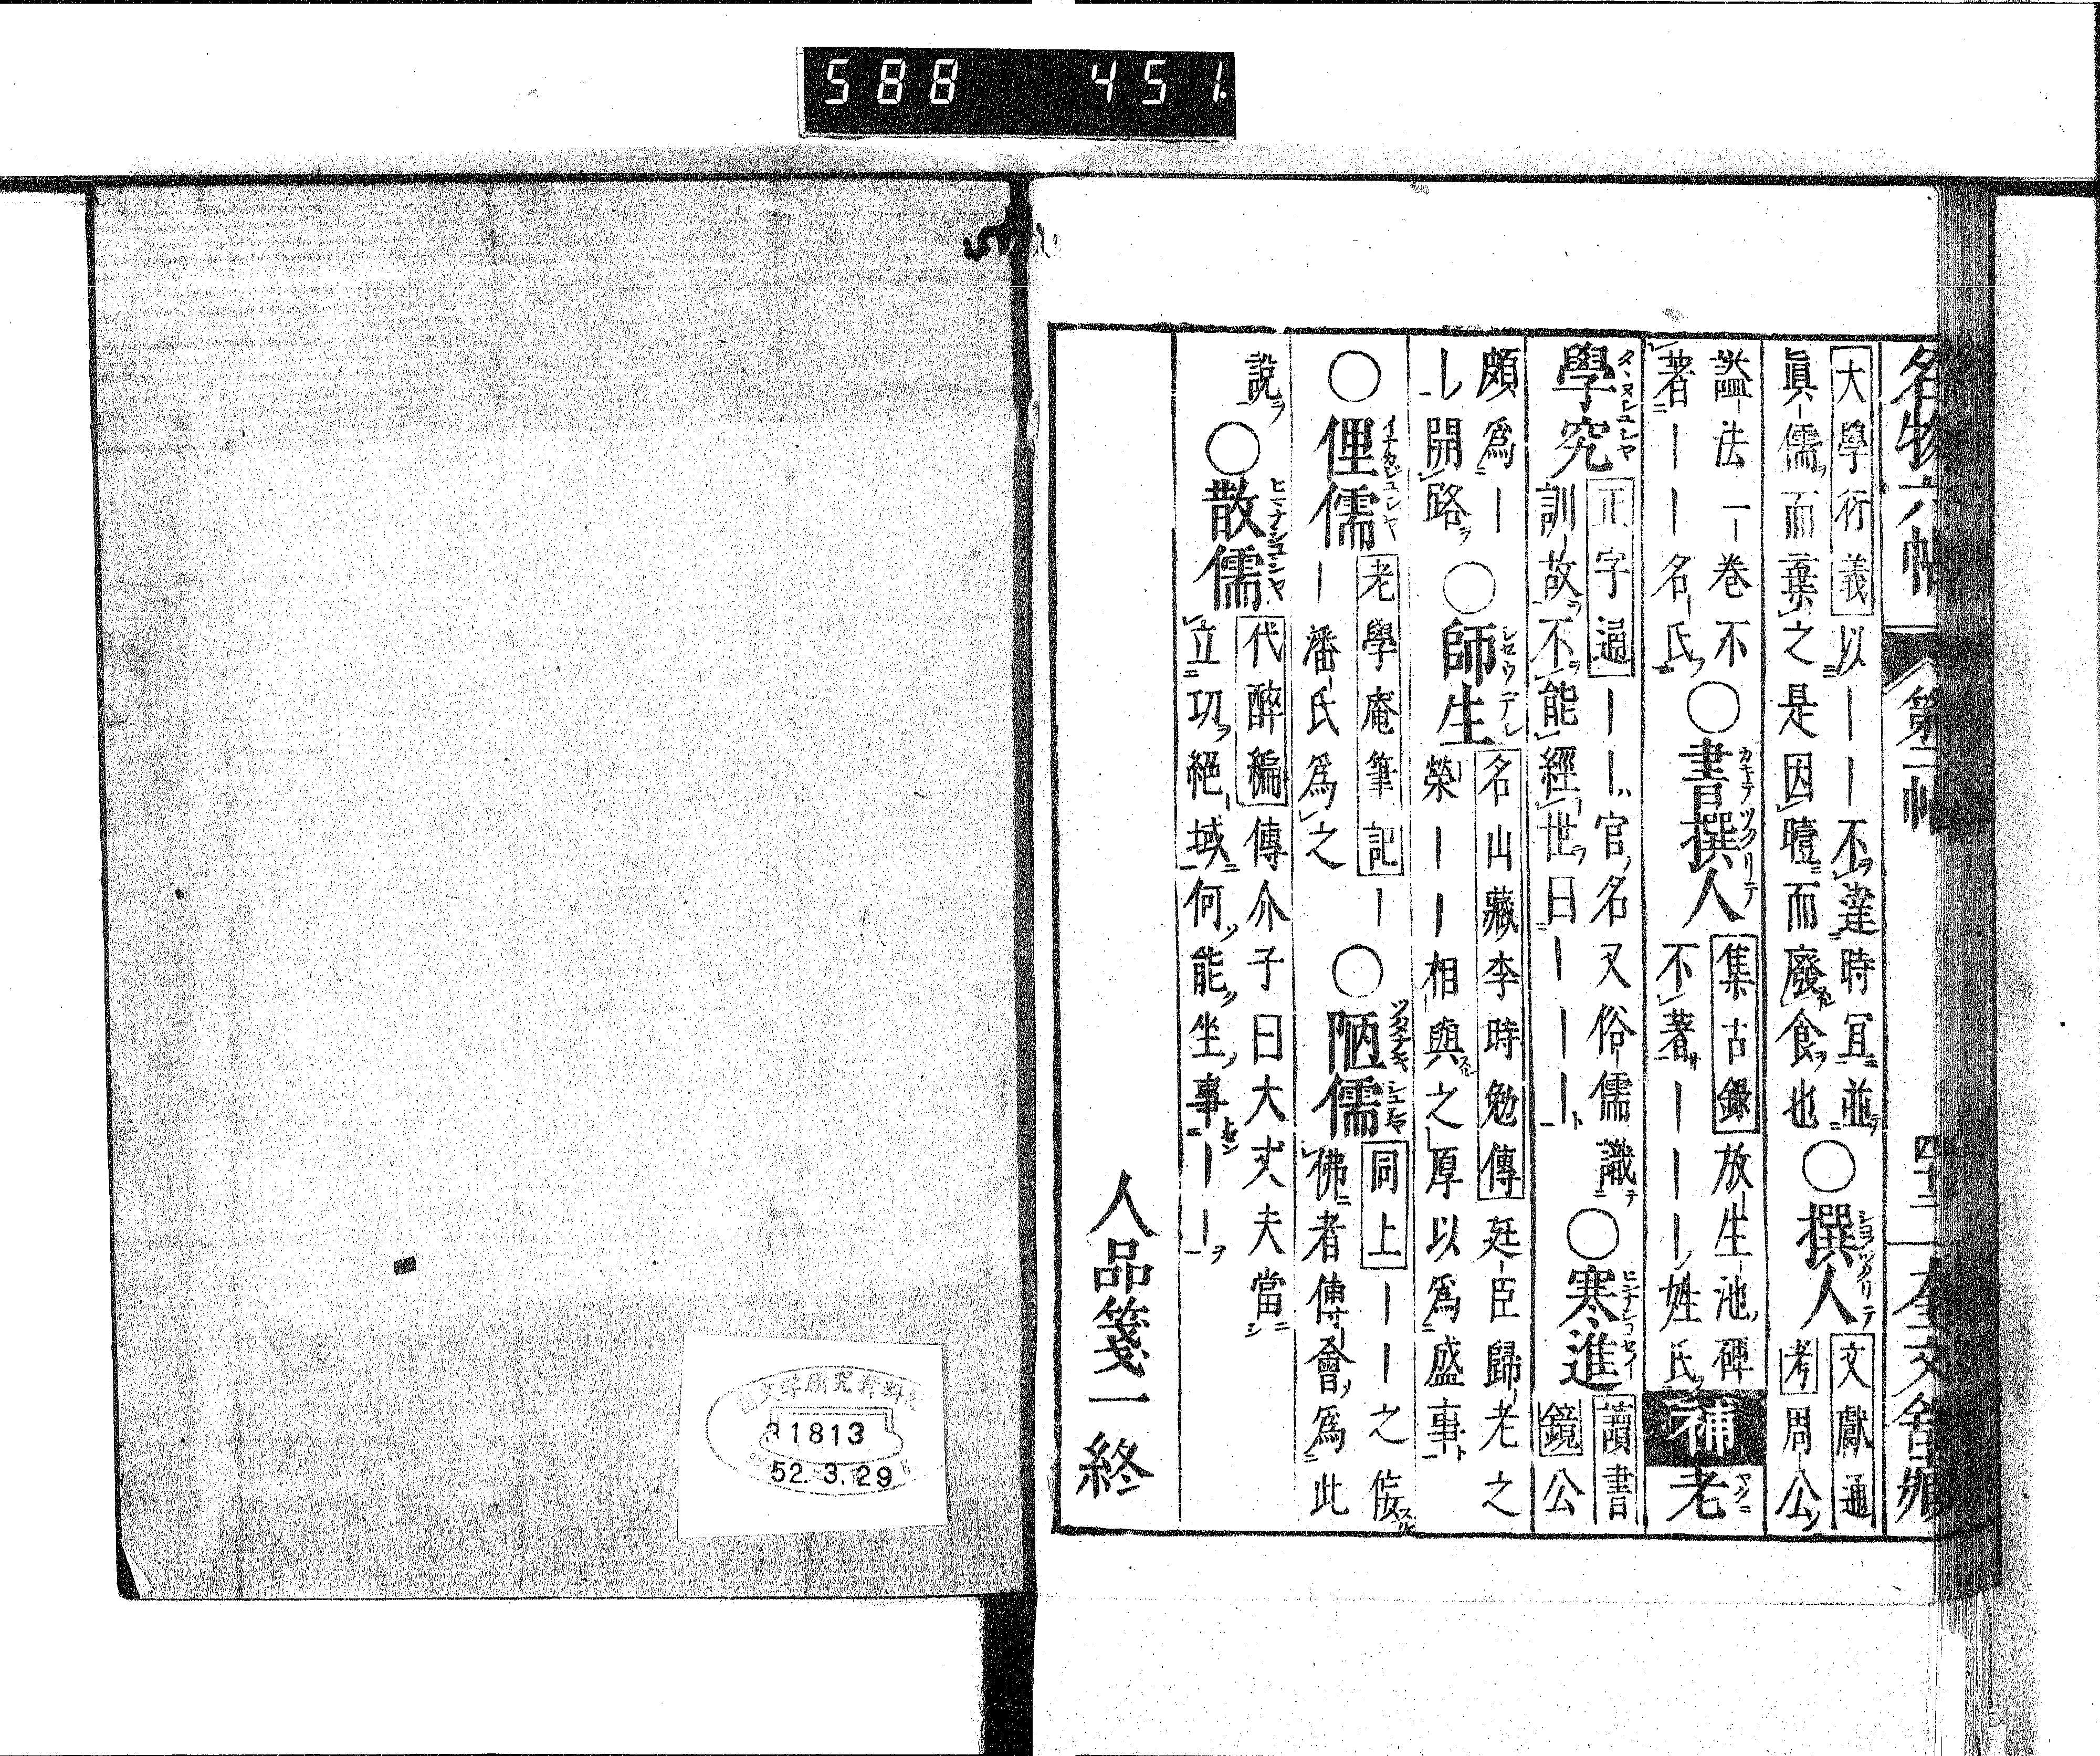 588 451.
名物六帖 第二帖 四十二 奎文舘藏
大學衍義 以――不達時宜並
眞儒而棄之是因噎而廢食也
○撰人 ショヲツクリテ
文獻通
考 周公
謚法一巻不
著――名氏
○書撰人 カキヲツクリテ
集古録 放生池碑
不著―――姓氏
補 老
學究
正字通 ――官名又俗儒識
訓故不能經世曰――――
○寒進
讀書
鏡 公
頗爲―
―開路
○師生
名山藏李時勉傳 廷臣歸老之
榮――相與之厚以爲盛事
○俚儒 イナカジュシャ
老學庵筆記 ―
―潘氏爲之
○陋儒
同上 ――之侫
佛者傅會爲此
說
○散儒 ヒマナジュシャ
代醉編 傅介子曰大丈夫當
立功絕域何能坐事――
人品箋一終
31813
52.3.29